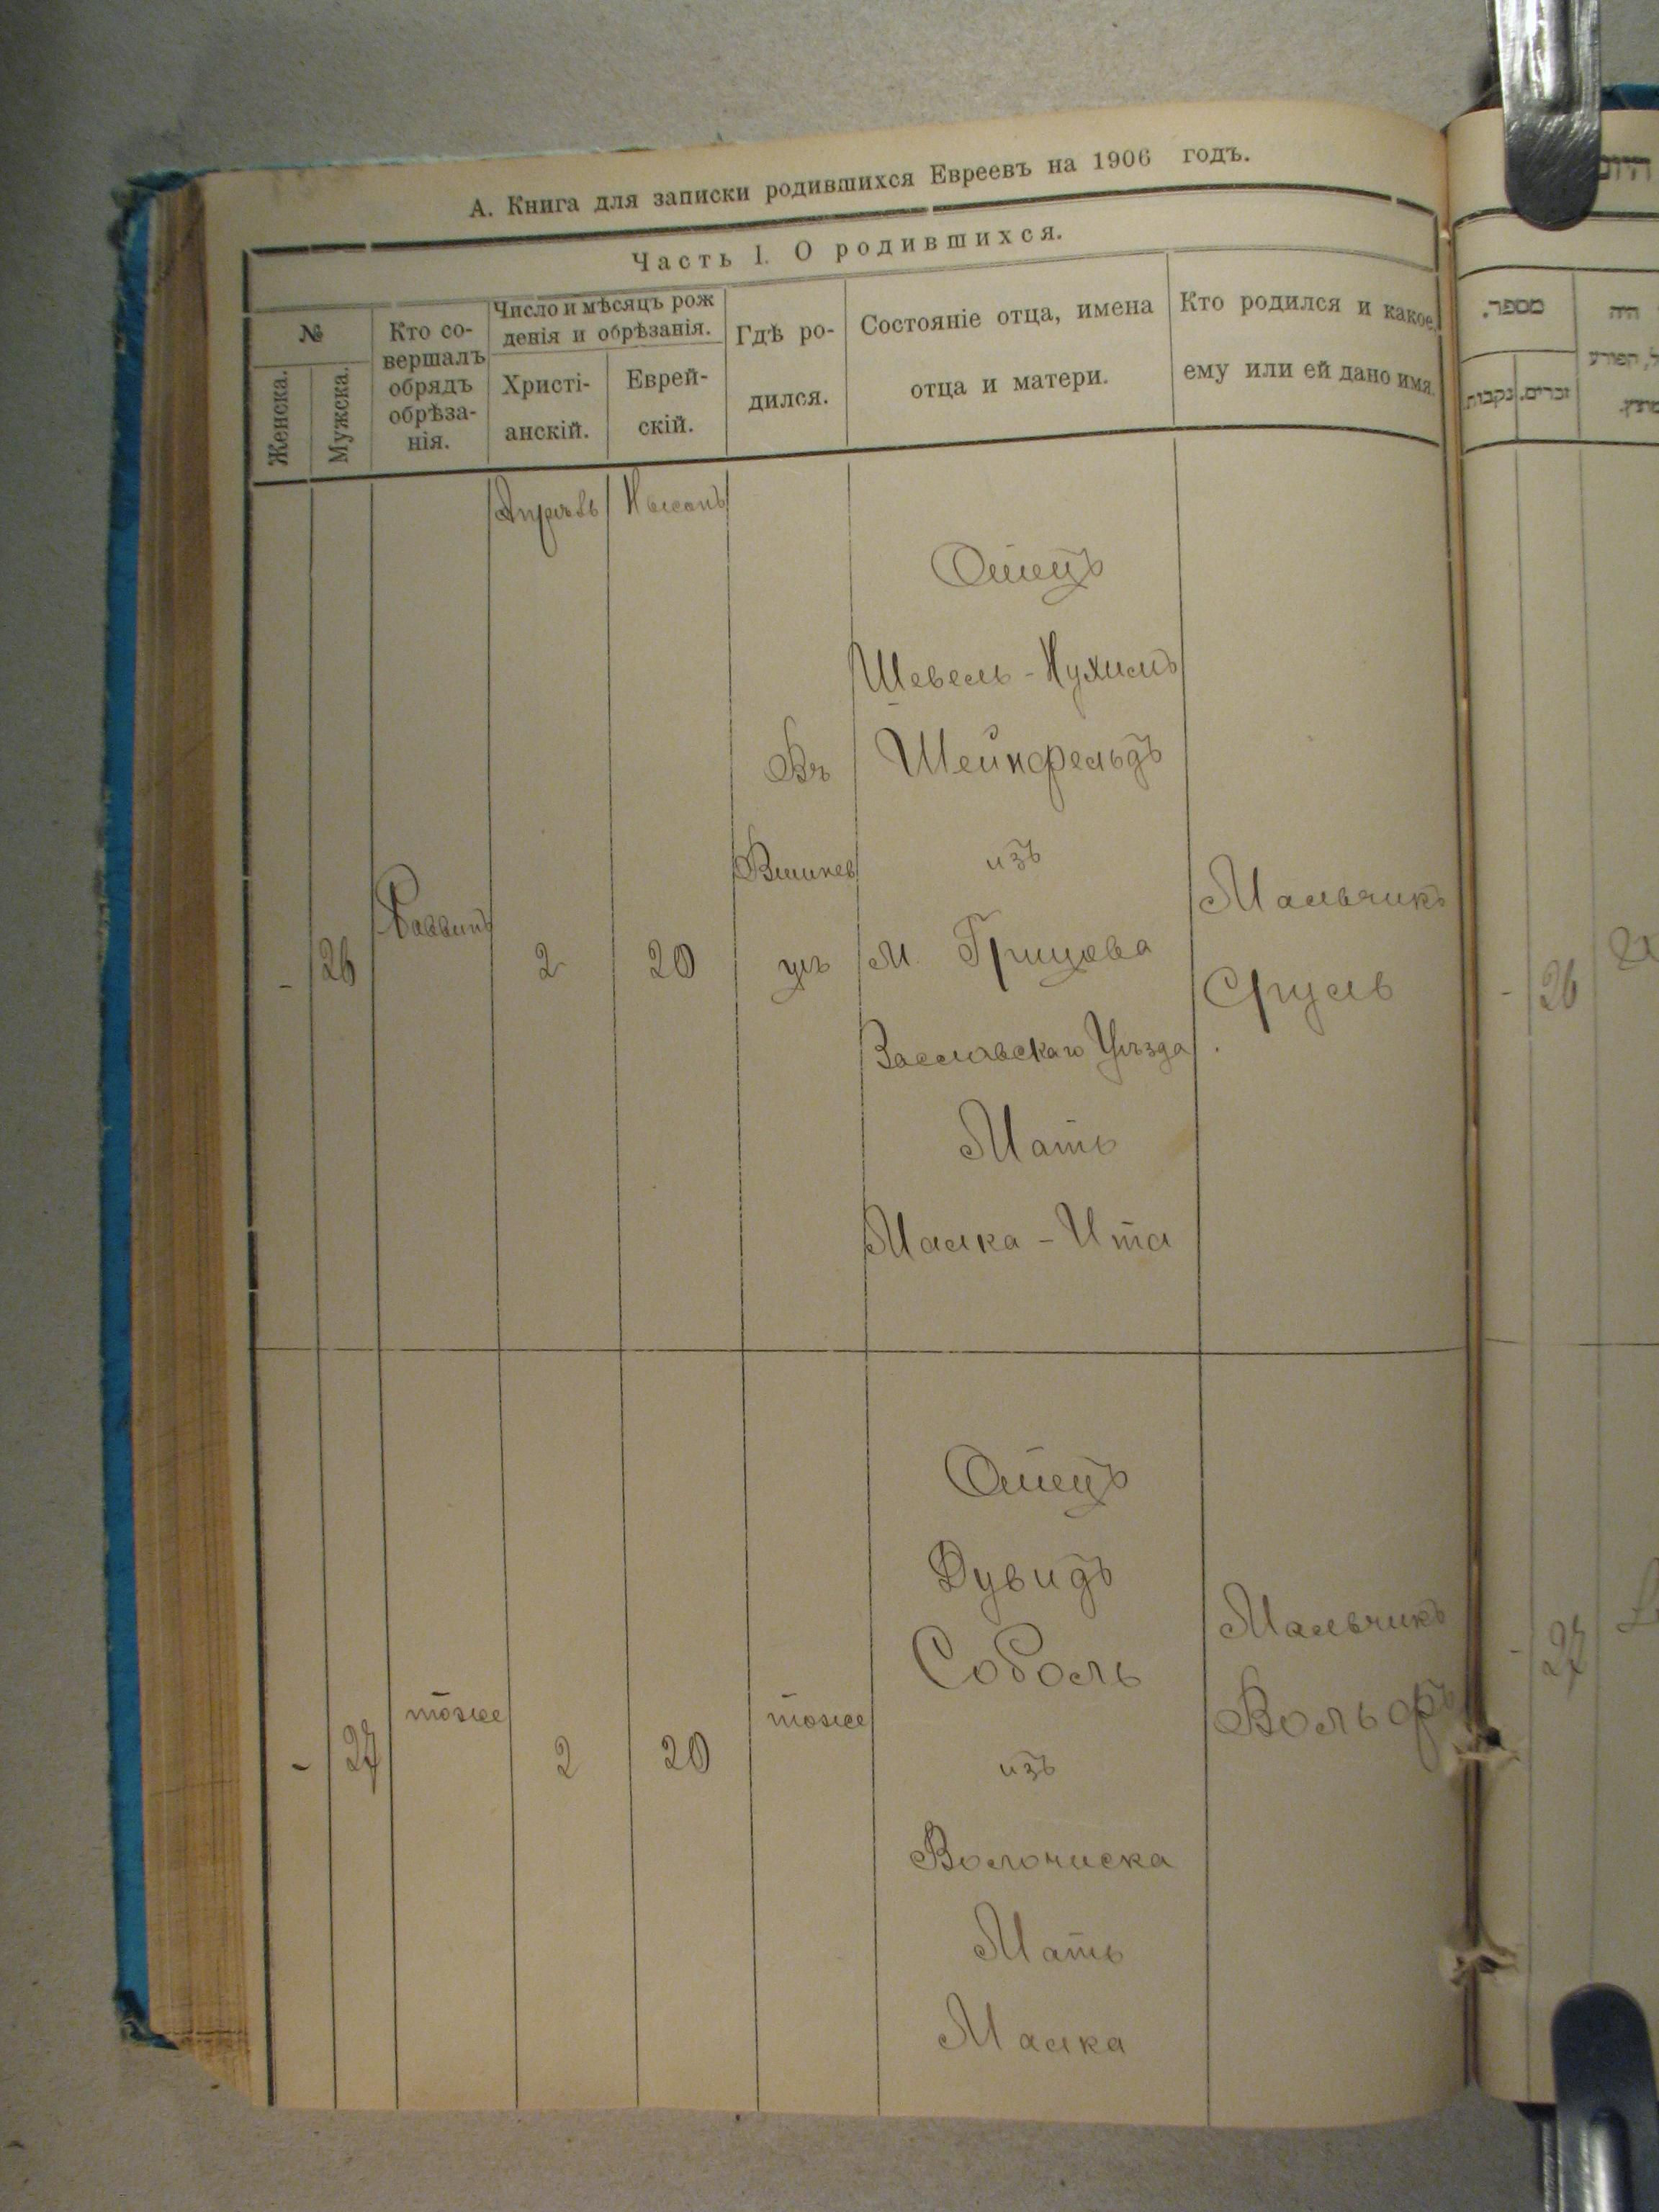 А. Книга для записки родившихся Евреевъ на 1906 годъ.
Часть I. О родившихся.
№
Женска.
Мужска.
Кто со-
вершалъ
обрядъ
обрѣза-
нія.
Число и мѣсяцъ рож
денія и обрѣзанія.
Христі-
анскій.
Еврей-
скій.
Гдѣ ро-
дился.
Состояніе отца, имена
отца и матери.
Кто родился и какое,
ему или ей дано имя.
Апрѣль
Нысонъ
-
26
Раввинъ
2
20
Въ
Вишнев
цѣ
Отецъ
Шевель-Нухимъ
Шейнфельдъ
изъ
м. Грицева
Заславскаго Уѣзда
Мать
Малка-Ита
Мальчикъ
Сруль
-
27
тоже
2
20
тоже
Отецъ
Дувидъ
Соболь
изъ
Волочиска
Мать
Малка
Мальчикъ
Вольфъ
מספר.
נקבות
זכרים.
היה
- 26
- 27